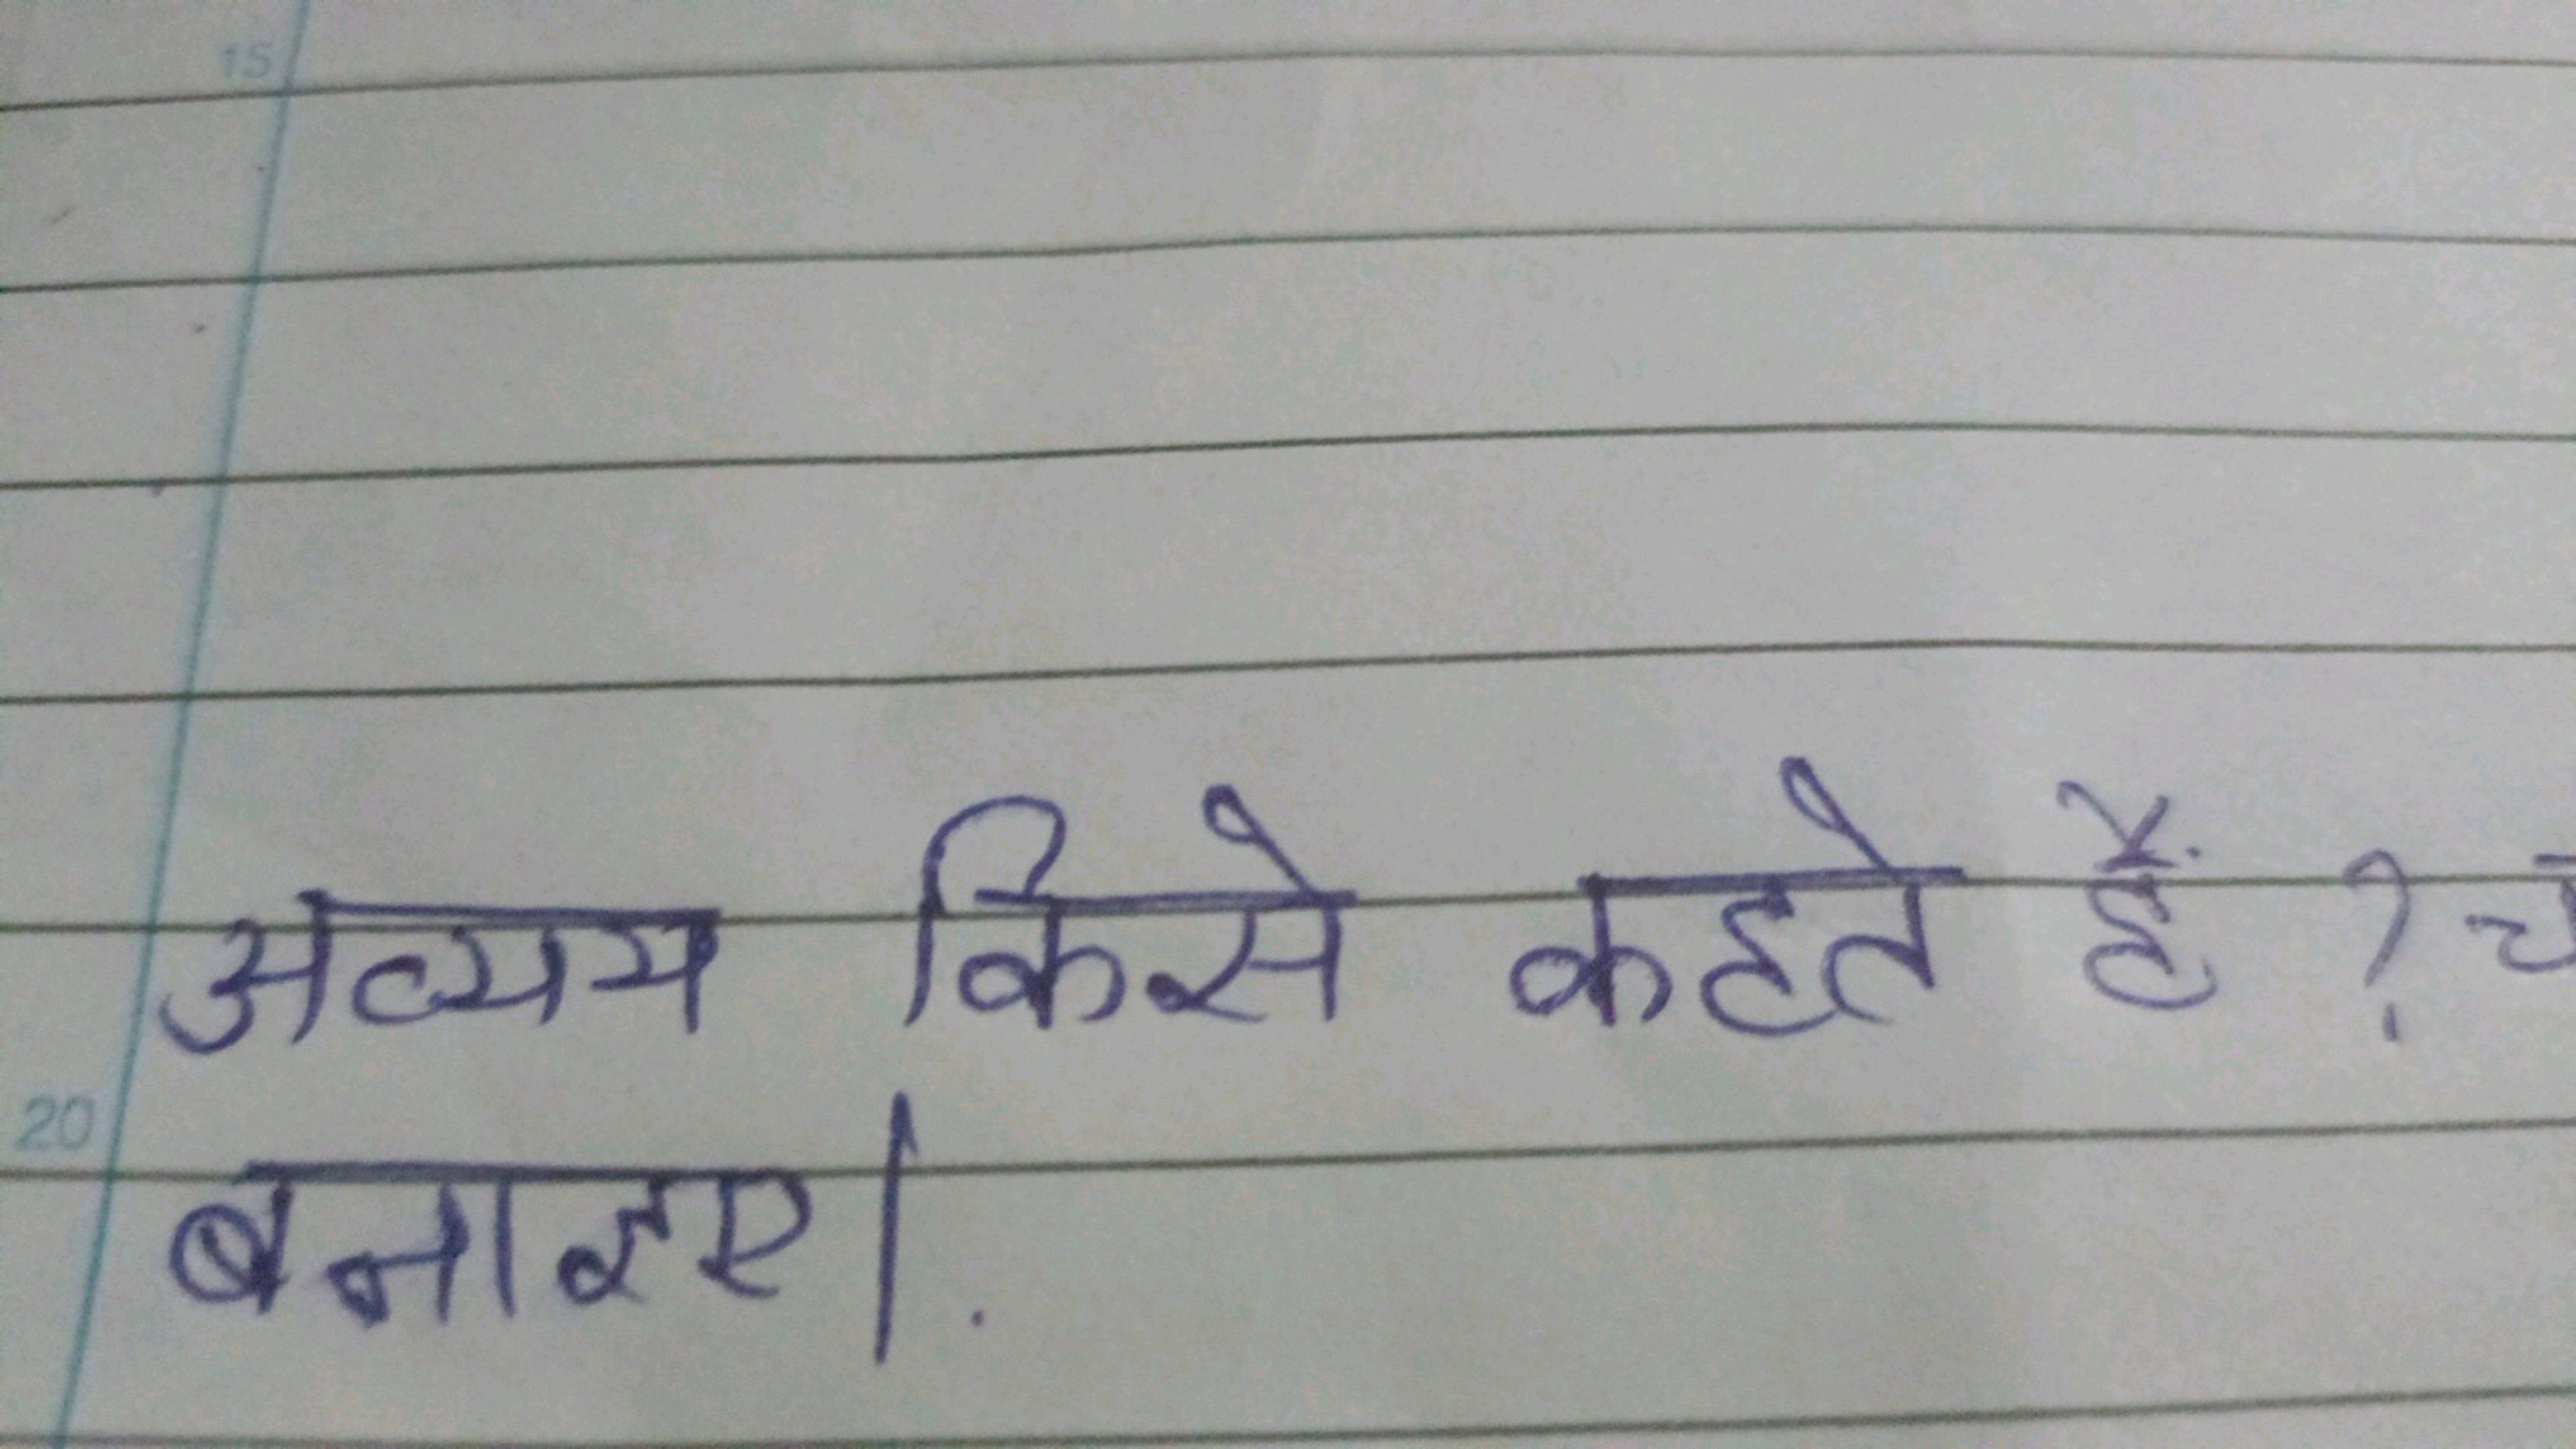 15
अव्यय किसे कहते हैं ?
20
बनाइए।.